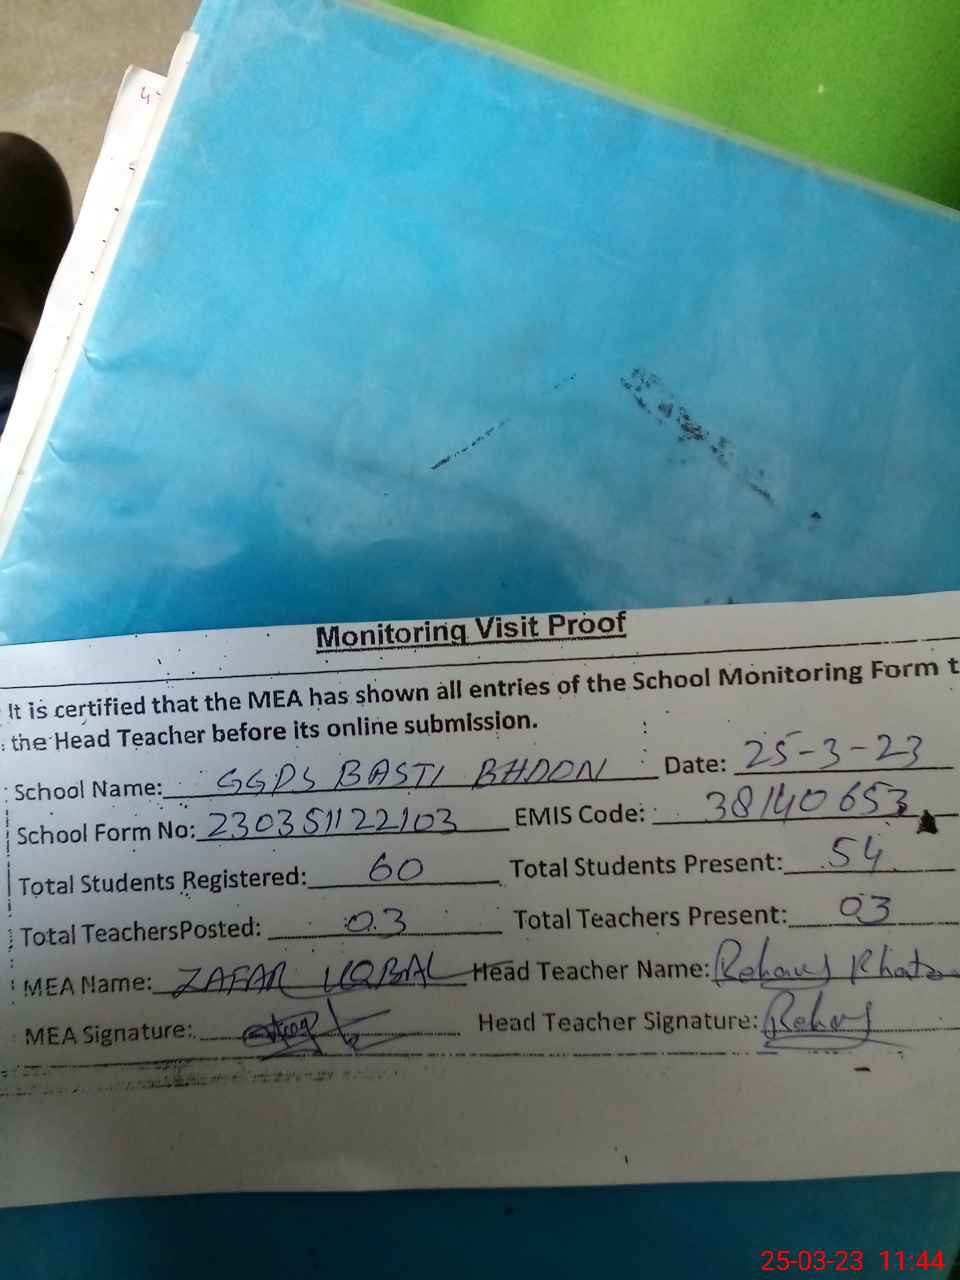 Monitoring Visit Proof
It is certified that the MEA has shown all entries of the School Monitoring Form t
the Head Teacher before its online submission.
School Name: GGPS BASTI BHDON Date: 25-3-23
School Form No: 230351122103 EMIS Code: 38140653
Total Students Registered: 60 Total Students Present: 54
Total TeachersPosted: 03 Total Teachers Present: 03
MEA Name: ZAFAR IQBAL Head Teacher Name:
MEA Signature: Head Teacher Signature:
25-03-23 11:44